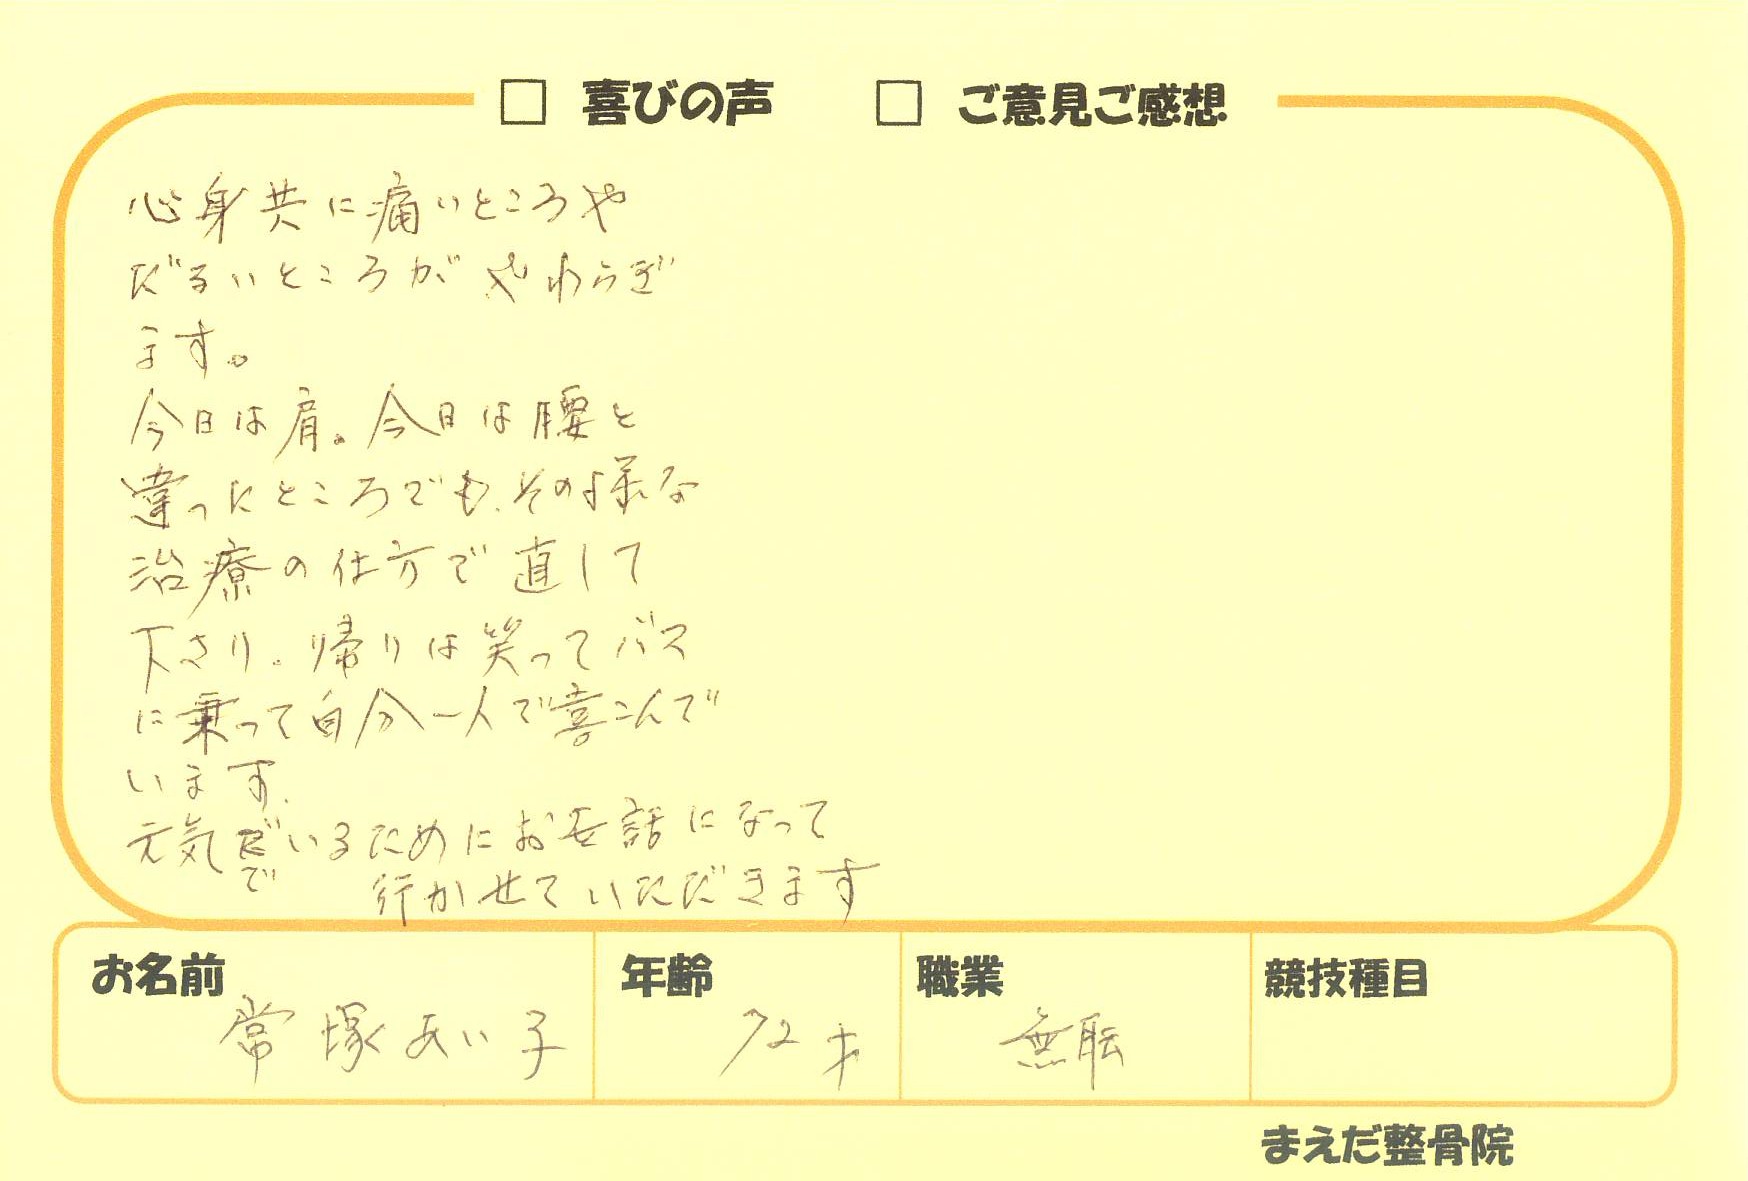 □ 喜びの声 □ ご意見ご感想
心身共に痛いところや
だるいところがやわらぎ
ます。
今日は肩。今日は腰と
違ったところでも、その様な
治療の仕方で直して
下さり、帰りは笑ってバス
に乗って自分一人で喜こんで
います。
元気でいるためにお世話になって
行かせていただきます
お名前 年齢 職業 競技種目
常塚あい子 72才 無職
まえだ整骨院